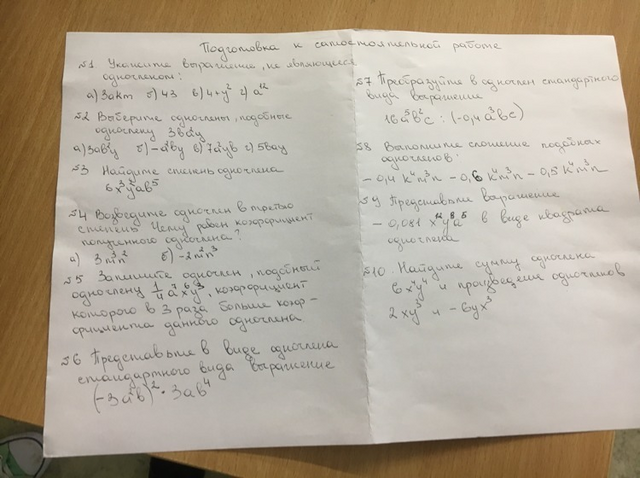 Подготовка к самостоятельной работе
№1 Укажите выражение, не являющееся
одночленом:
а) 3akm б) 43 в) 4+y² г) a¹²
№2 Выберите одночлены, подобные
одночлену 3b²y
№3 Найдите степень одночлена
6x³y²ab⁵
№4 Возведите одночлен в третью
степень. Чему равен коэффициент
полученного одночлена?
а) 3m³n² б) -2m²n³
№5 Запишите одночлен, подобный
одночлену 1/4 a⁷x⁶y³, коэффициент
которого в 3 раза больше коэф-
фициента данного одночлена
№6 Представьте в виде одночлена
стандартного вида выражение
(-3a²b)² · 3ab⁴
№7 Преобразуйте в одночлен стандартного
вида выражение
16a⁵b²c : (-0,4a³bc)
№8 Выполните сложение подобных
одночленов:
-0,4k⁴m³n - 0,6k⁴m³n - 0,5k⁴m³n
№9 Представьте выражение
-0,081x¹²y⁸a⁶ в виде квадрата
одночлена
№10 Найдите сумму одночлена
6x⁴y⁴ и произведения одночленов
2xy³ и -6yx³